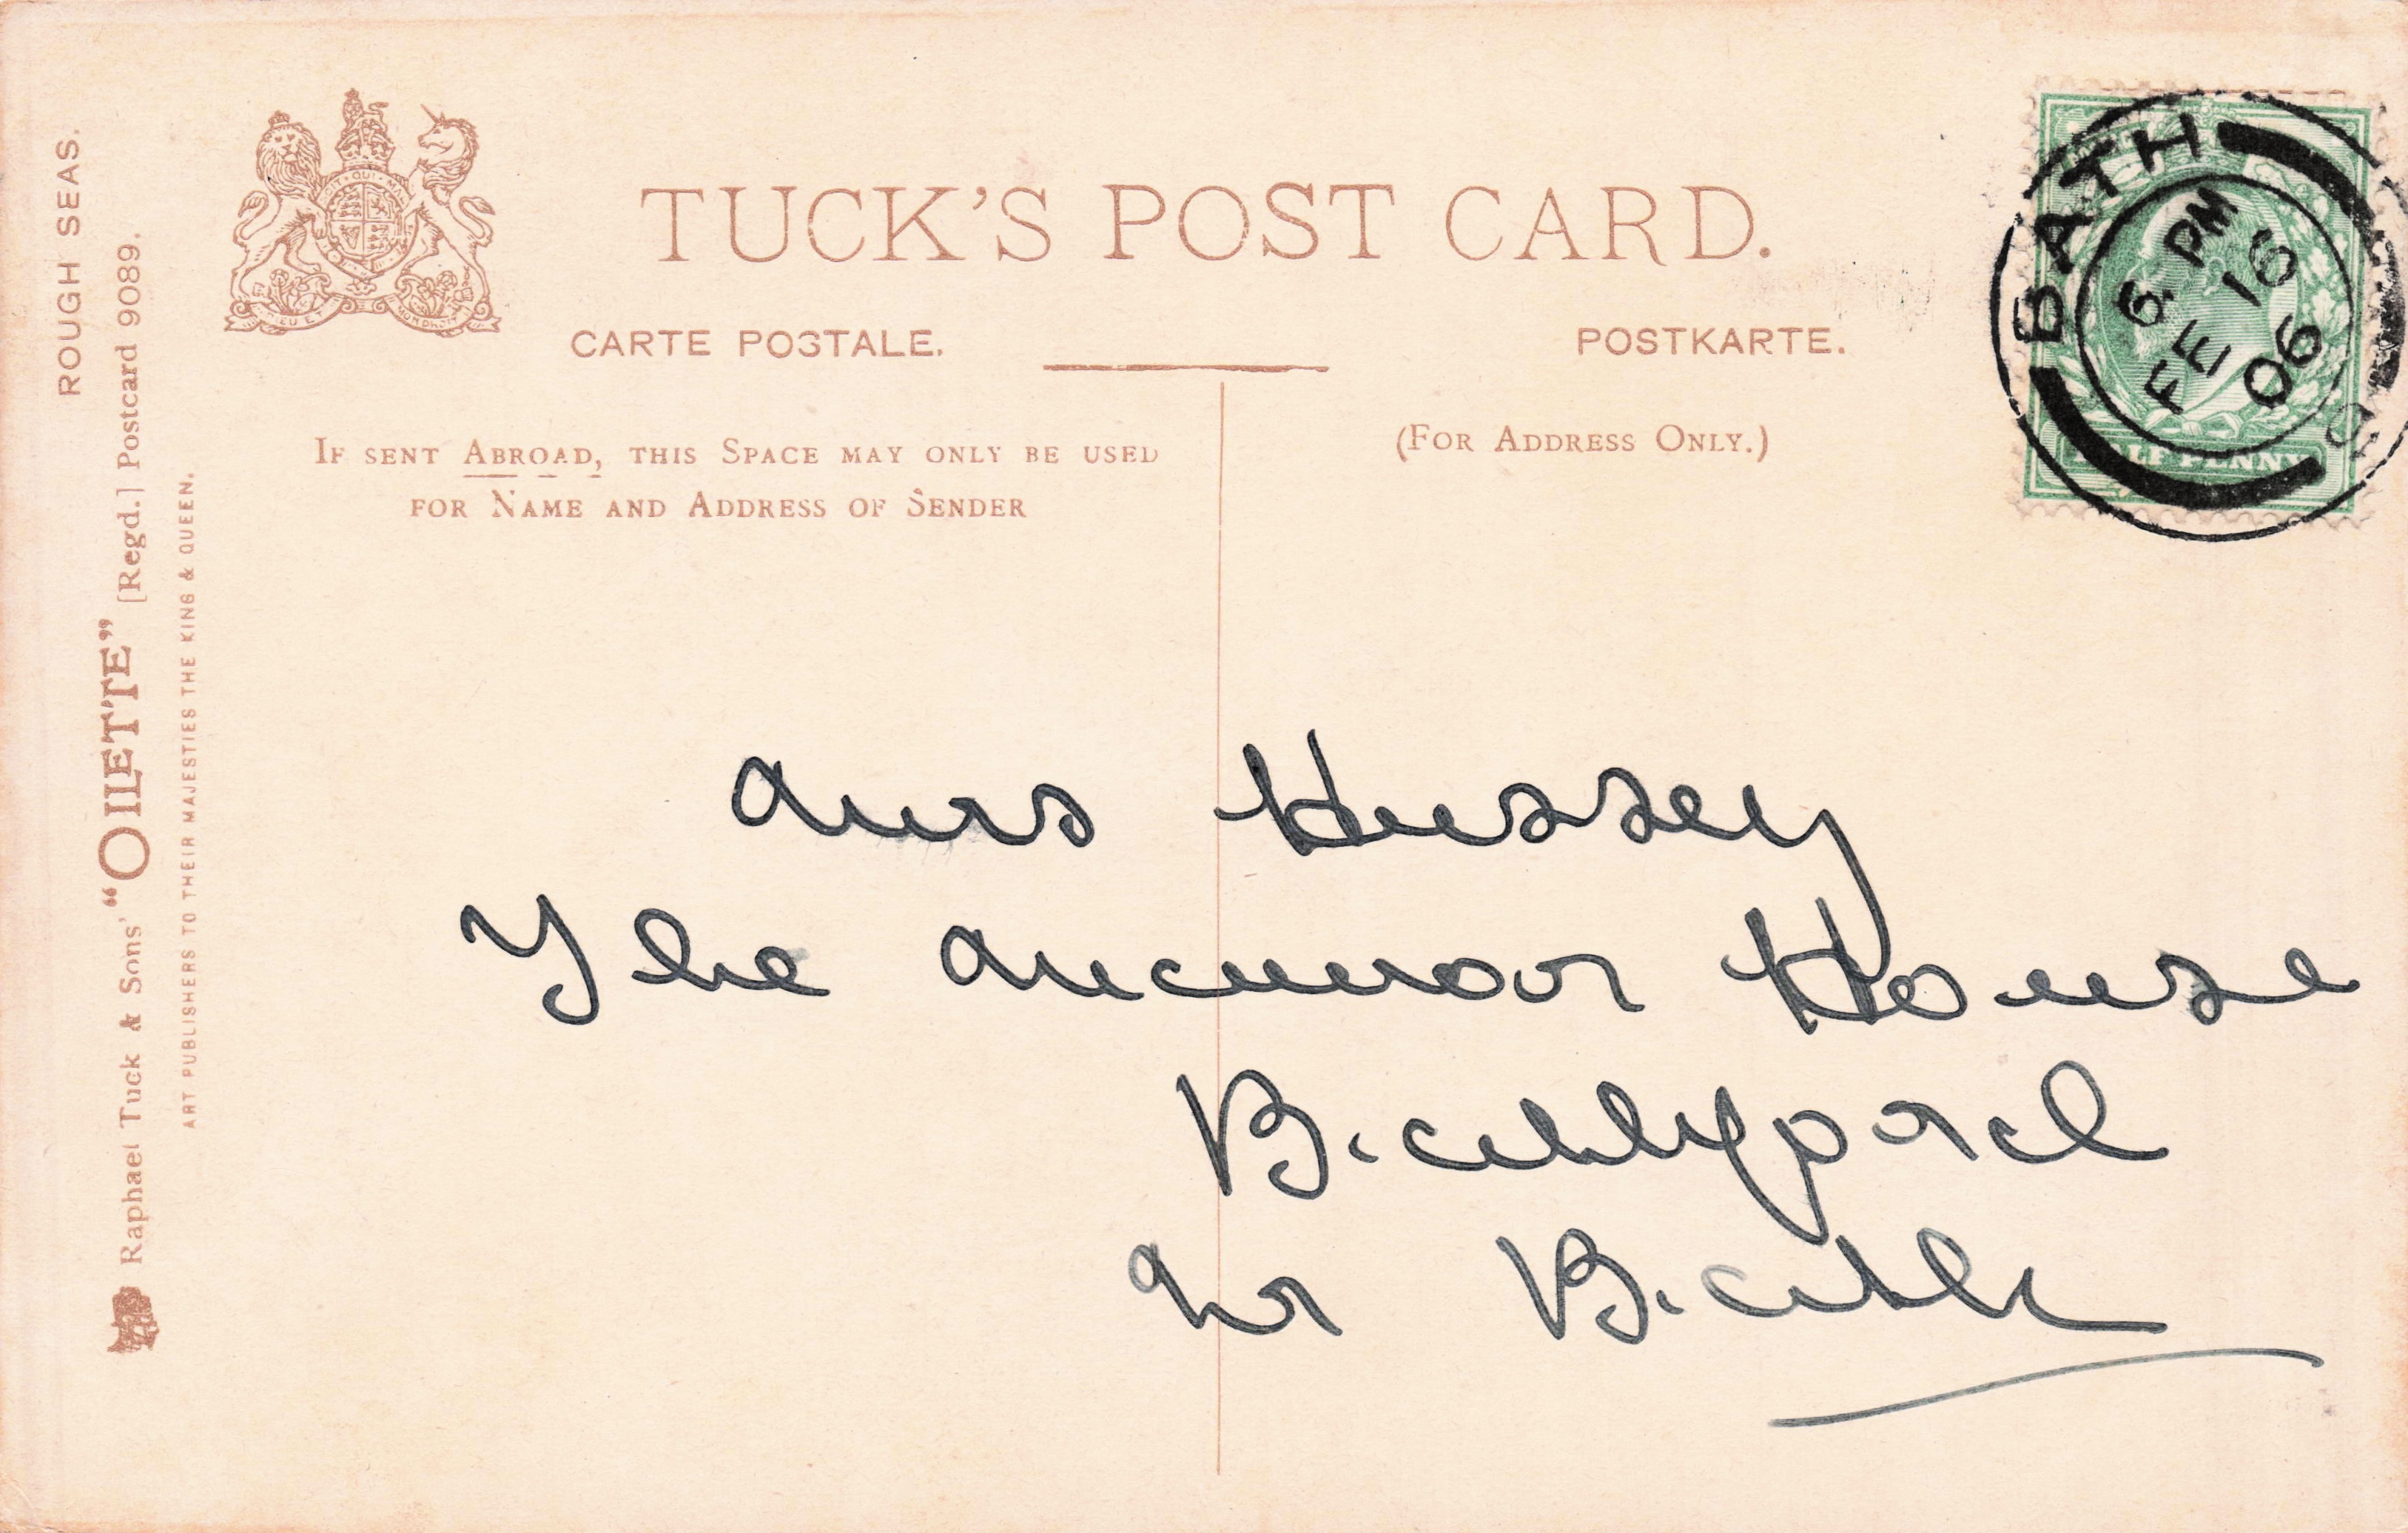 ROUGH SEAS.
Raphael Tuck & Sons' "OILETTE" [Regd.] Postcard 9089.
ART PUBLISHERS TO THEIR MAJESTIES THE KING & QUEEN.
TUCK'S POST CARD.
CARTE POSTALE. POSTKARTE.
IF SENT ABROAD, THIS SPACE MAY ONLY BE USED
FOR NAME AND ADDRESS OF SENDER
(FOR ADDRESS ONLY.)
BATH
6. PM
FE 16
06
HALF PENNY
Mrs Hussey
The Manor House
Bathford
Nr Bath